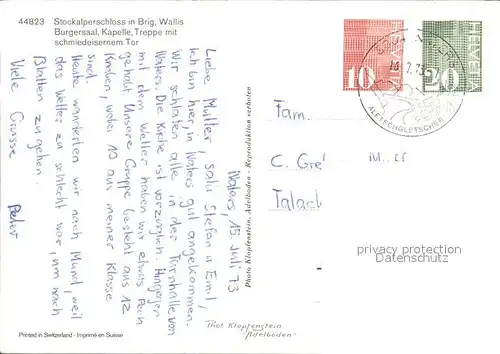 44823 Stockalperschloss in Brig, Wallis
Burgersaal, Kapelle, Treppe mit
schmiedeisernem Tor
Naters, 15 Juli 73
Liebe Mutter, salü Stefan u Emil,
Ich bin hier, in Naters gut angekommen.
Wir schlafen alle in der Turnhalle von
Naters. Die Küche ist vorzüglich. Hingegen
mit dem Wetter haben wir etwas Pech
gehabt. Unsere Gruppe besteht aus 12
Knaben, wobei 10 aus meiner Klasse
sind.
Heute wanderten wir nach Mund, weil
das Wetter zu schlecht war, um nach
Blatten zu gehen.
Viele Grüsse
Peter
Printed in Switzerland - Imprimé en Suisse
Photo Klopfenstein, Adelboden - Reproduktion verboten
Phot Klopfenstein
"Adelboden"
HELVETIA
10
HELVETIA
20
ALETSCHGLETSCHER
Fam.
C. Gre
Talach
privacy protection
Datenschutz